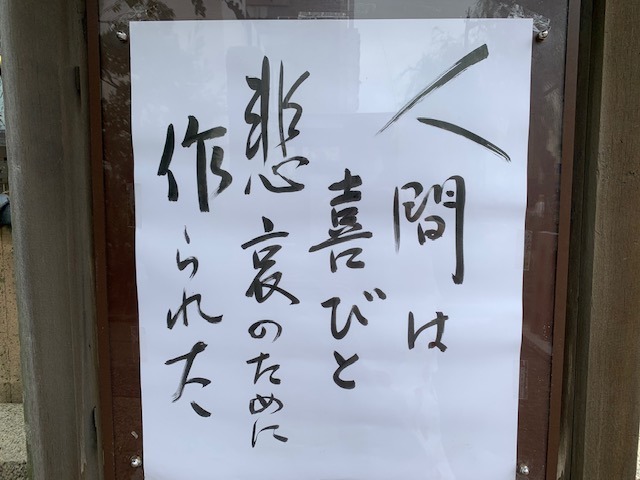 人間は
喜びと
悲哀のために
作られた